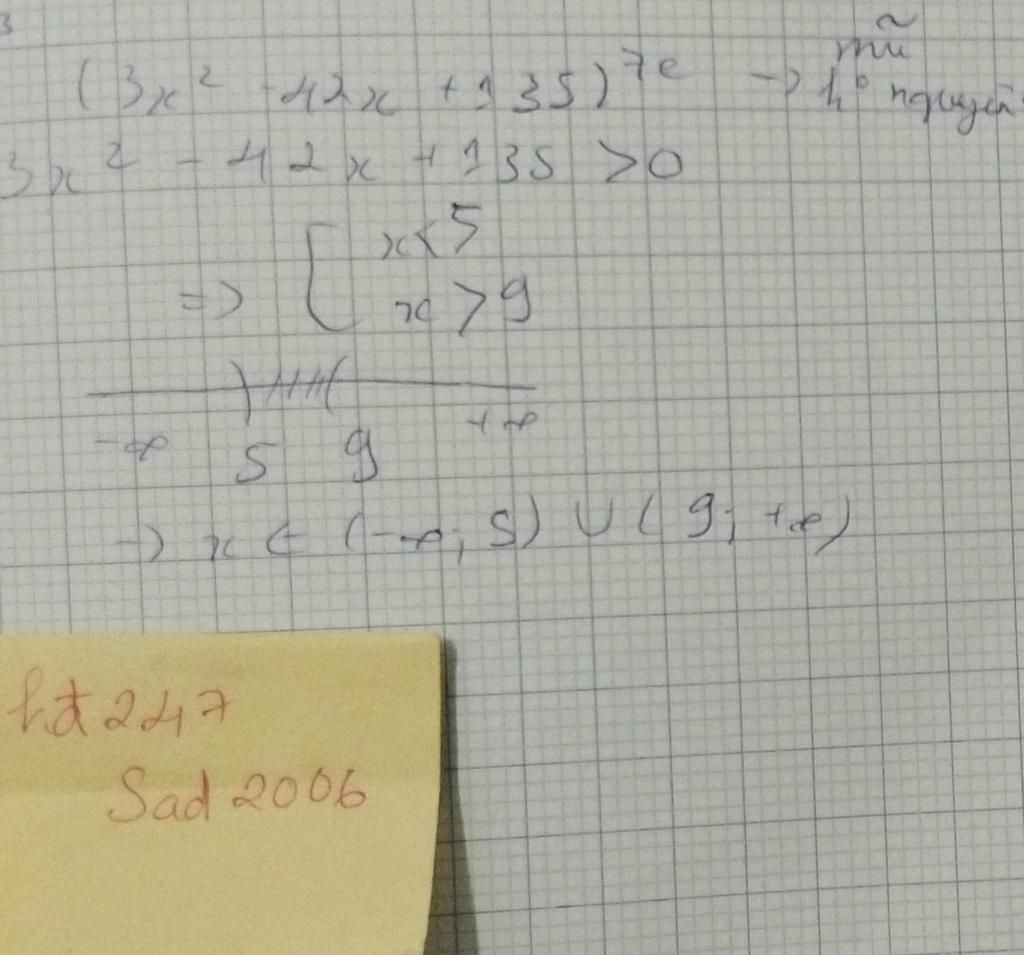 3
mũ
(3x² - 42x + 135)^7e → k° nguyên
3x² - 42x + 135 > 0
x < 5
=> [ x > 9
-∞ 5 9 +∞
→ x ∈ (-∞; 5) ∪ (9; +∞)
hd 247
Sad 2006